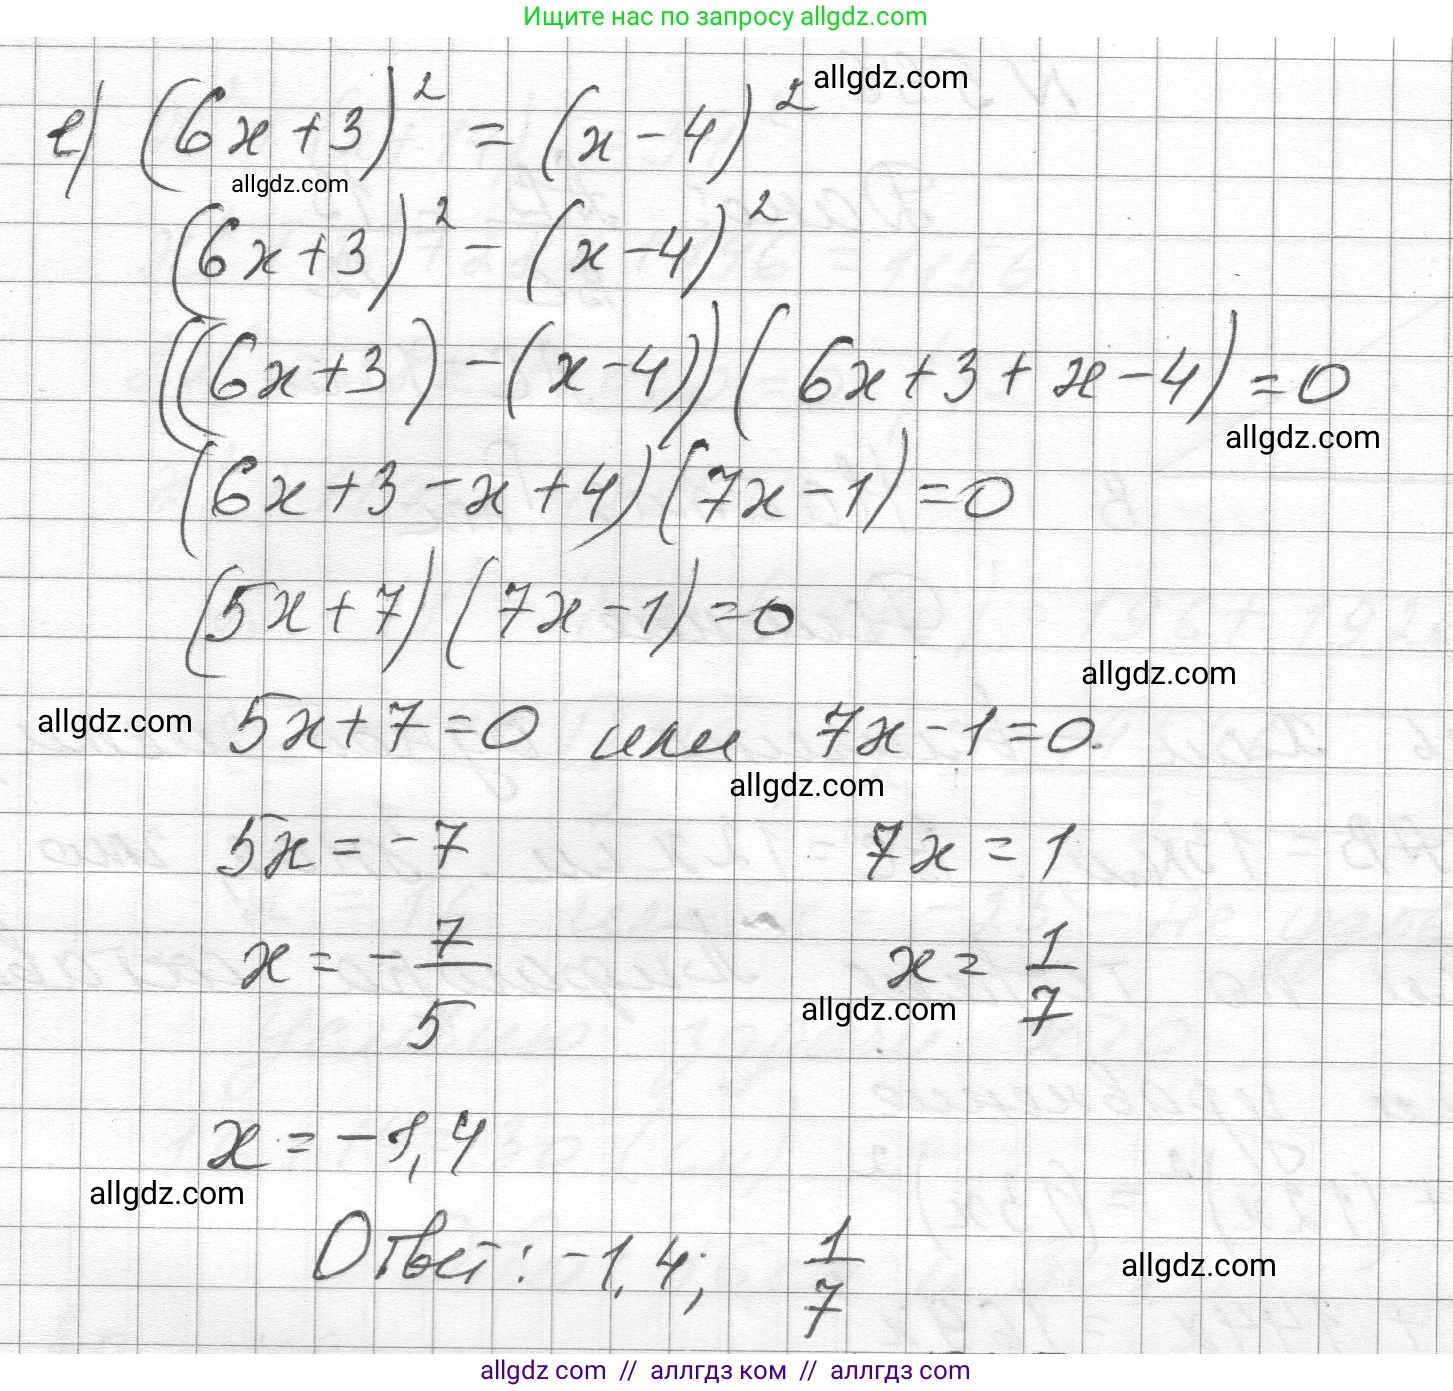 Ищите нас по запросу allgdz.com
allgdz.com
е) (6x+3)² = (x-4)²
allgdz.com
(6x+3)² - (x-4)²
((6x+3) - (x-4)) (6x+3+x-4) = 0
allgdz.com
(6x+3-x+4)(7x-1) = 0
(5x+7)(7x-1) = 0
allgdz.com
allgdz.com
5x+7=0 или 7x-1=0.
allgdz.com
5x = -7 7x = 1
x = -7/5 x = 1/7
allgdz.com
x = -1,4
allgdz.com
Ответ: -1,4; 1/7
allgdz.com
allgdz com // аллгдз ком // allgdz com